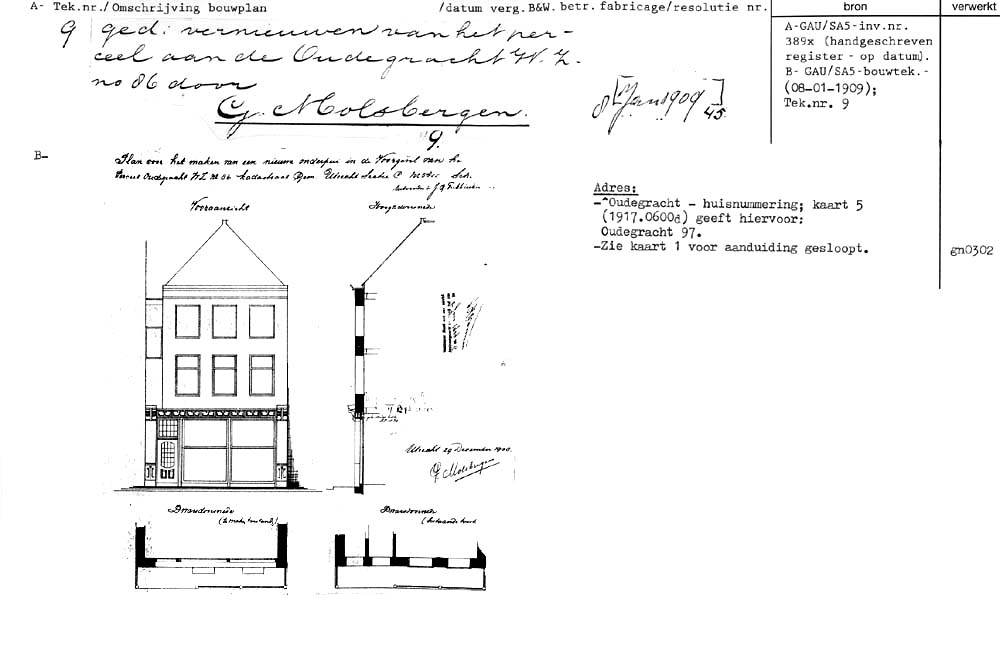 A- Tek.nr./Omschrijving bouwplan /datum verg.B&W. betr. fabricage/resolutie nr.
bron
verwerkt
9 ged: vernieuwen van het per-
ceel aan de Oudegracht W.Z.
no 86 door
G. Molsbergen.
8 [Jan 1909] 45
A-GAU/SA5-inv.nr.
389x (handgeschreven
register - op datum).
B- GAU/SA5-bouwtek.-
(08-01-1909);
Tek.nr. 9
9.
B-
Plan voor het maken van een nieuwe onderpui in de Voorgevel van het
Perceel Oudegracht W.Z. No 86 Kadastraal Gem. Utrecht Sectie C
Vooraanzicht
Hoogtedoorsnede
Adres:
-^Oudegracht - huisnummering; kaart 5
(1917.0600d) geeft hiervoor:
Oudegracht 97.
-Zie kaart 1 voor aanduiding gesloopt.
gn0302
Utrecht 29 December 1908
G. Molsbergen
Draadsnede
Draadsnede
(bestaande toestand